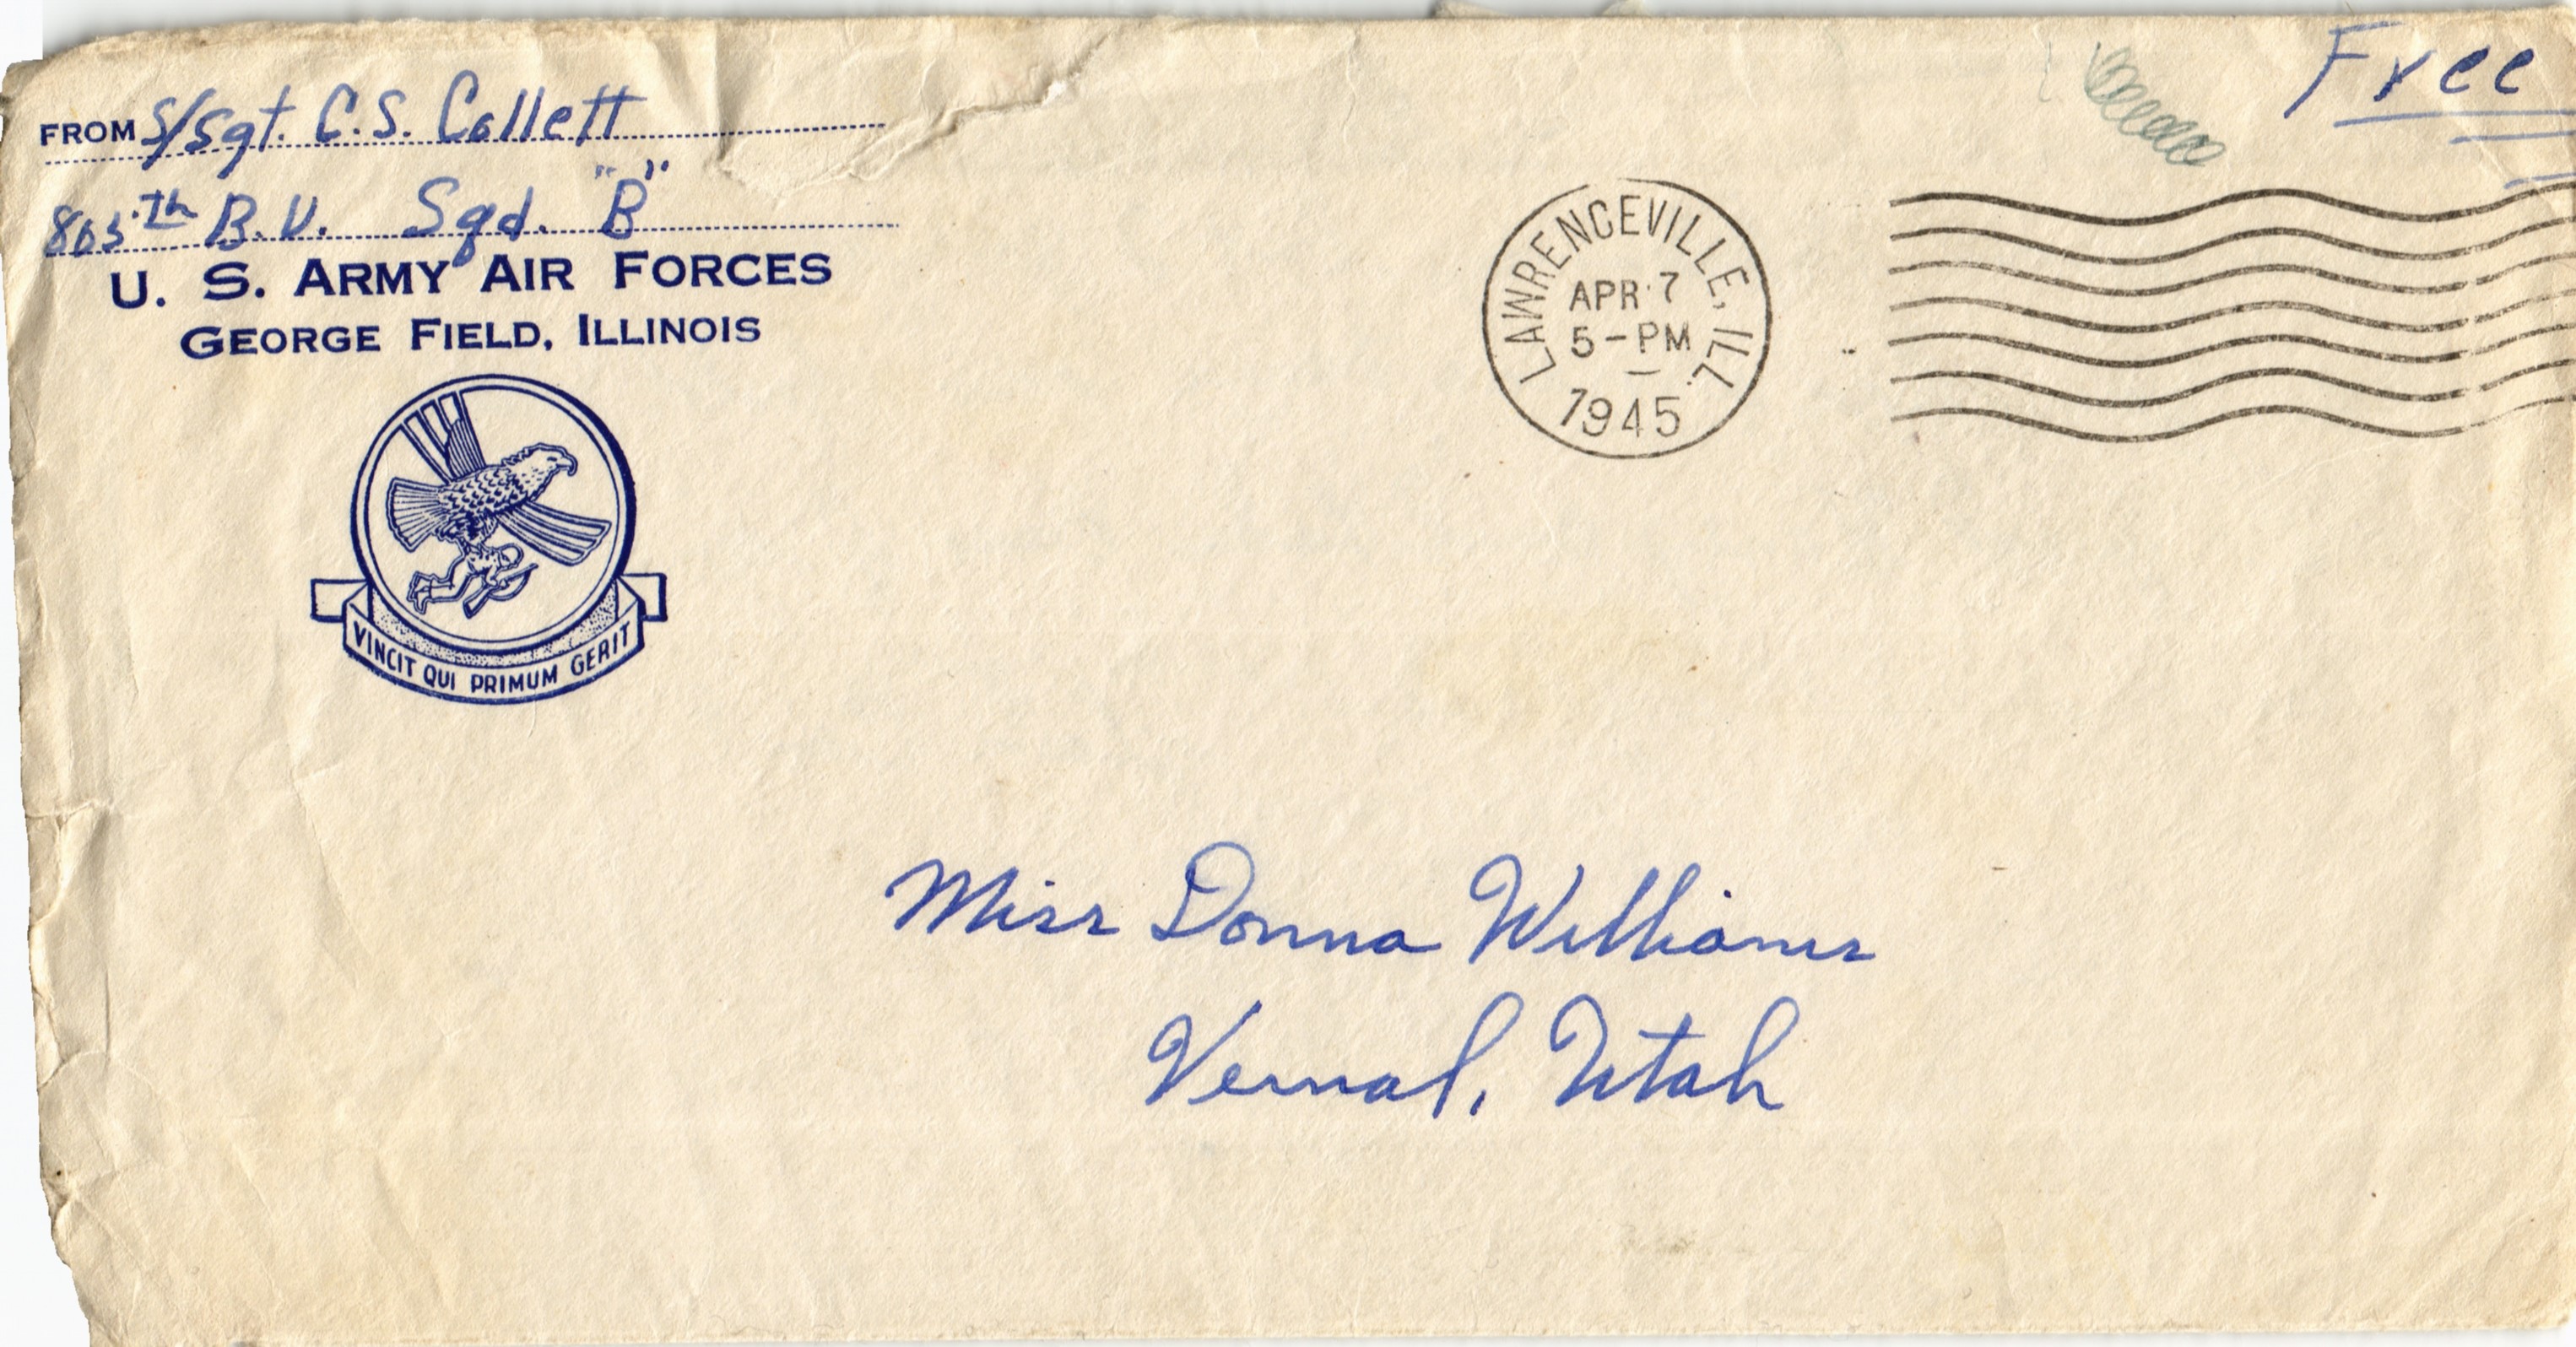 Free
FROM S/Sgt. C.S. Collett
805th B.U. Sqd. "B"
U. S. ARMY AIR FORCES
GEORGE FIELD, ILLINOIS
VINCIT QUI PRIMUM GERIT
LAWRENCEVILLE, ILL.
APR 7
5-PM
1945
Miss Donna Williams
Vernal, Utah